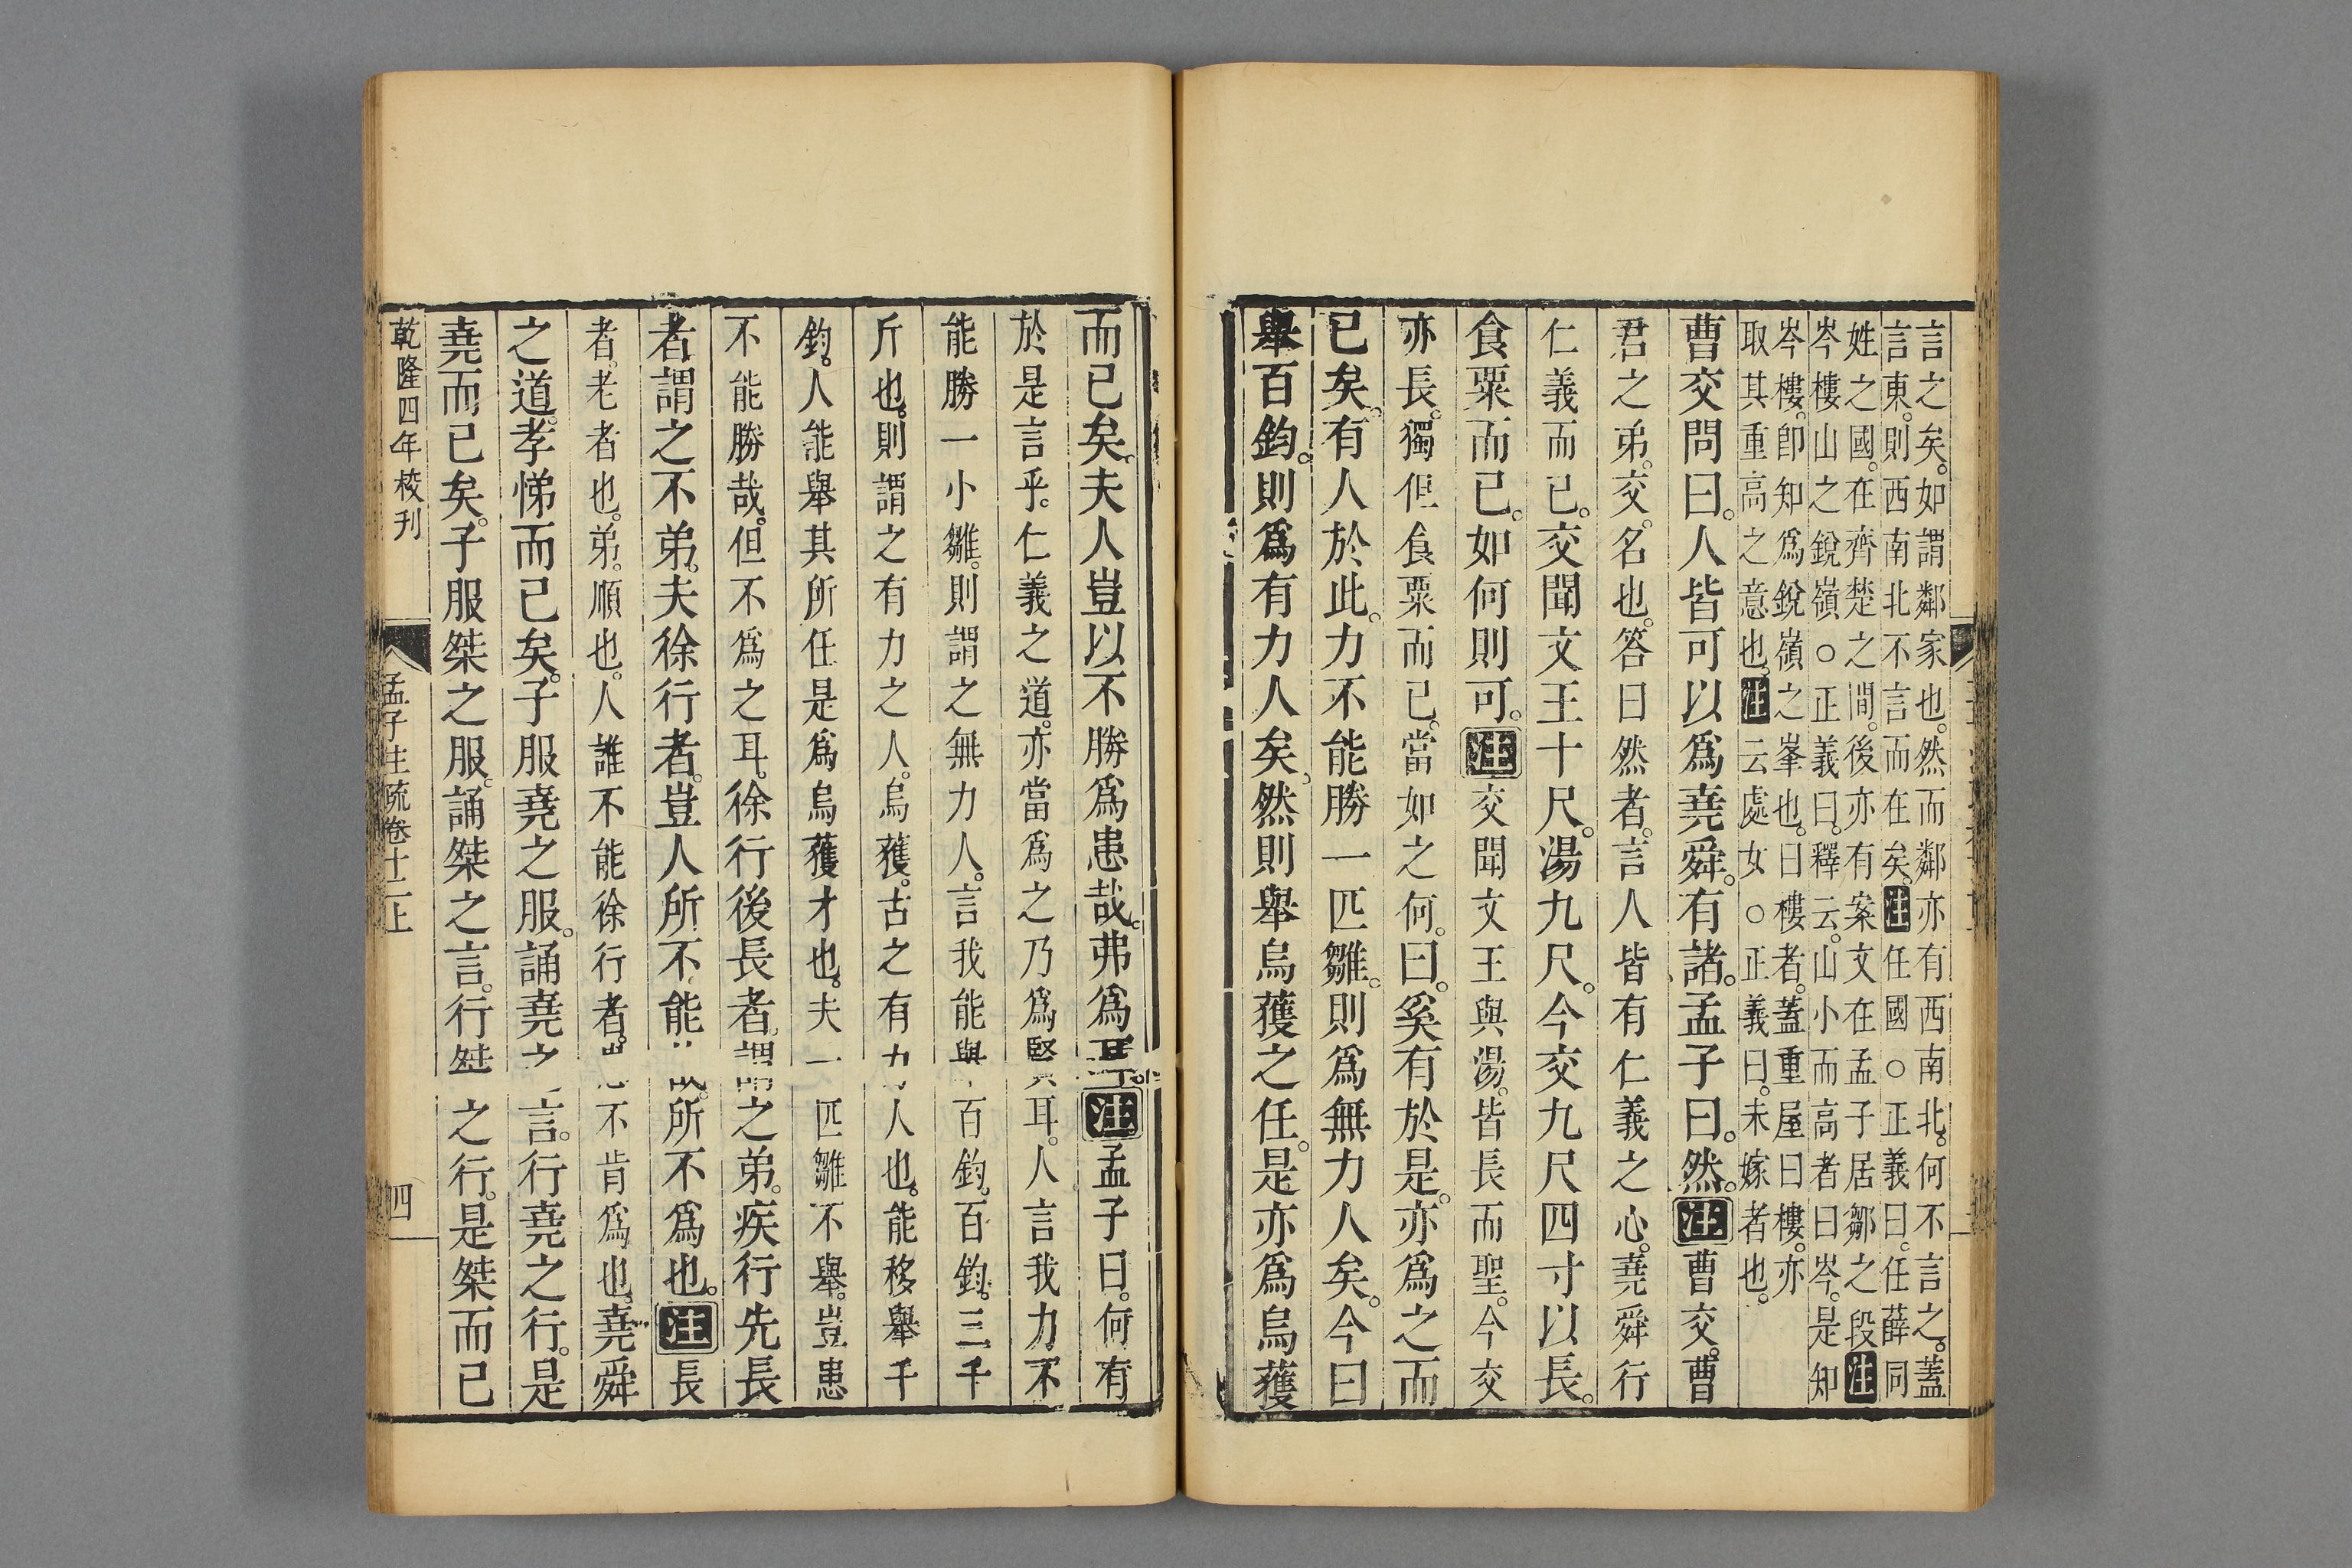 言之矣。如謂鄰家也。然而鄰亦有西南北。何不言之。蓋
言東。則西南北不言而在矣。注任國○正義曰。任薛同
姓之國。在齊楚之間。後亦有案文在孟子居鄒之段注
岑樓山之銳嶺○正義曰。釋云。山小而高者曰岑。是知
岑樓。卽知爲銳嶺之峯也。曰樓者。蓋重屋曰樓。亦
取其重高之意也。注云處女○正義曰。未嫁者也。
曹交問曰。人皆可以爲堯舜。有諸。孟子曰。然。注曹交。曹
君之弟。交。名也。答曰然者。言人皆有仁義之心。堯舜行
仁義而已。交聞文王十尺。湯九尺。今交九尺四寸以長。
食粟而已。如何則可。注交聞文王與湯。皆長而聖。今交
亦長。獨但食粟而已。當如之何。曰。奚有於是。亦爲之而
已矣。有人於此。力不能勝一匹雛。則爲無力人矣。今曰
舉百鈞。則爲有力人矣。然則舉烏獲之任。是亦爲烏獲
而已矣。夫人豈以不勝爲患哉。弗爲耳。注孟子曰。何有
於是言乎。仁義之道。亦當爲之乃爲賢耳。人言我力不
能勝一小雛。則謂之無力人。言我能舉百鈞。百鈞。三千
斤也。則謂之有力之人。烏獲。古之有力人也。能移舉千
鈞。人能舉其所任是爲烏獲才也。夫一匹雛不舉。豈患
不能勝哉。但不爲之耳。徐行後長者。謂之弟。疾行先長
者謂之不弟。夫徐行者。豈人所不能哉。所不爲也。注長
者。老者也。弟。順也。人誰不能徐行者。患不肯爲也。堯舜
之道。孝悌而已矣。子服堯之服。誦堯之言。行堯之行。是
堯而已矣。子服桀之服。誦桀之言。行桀之行。是桀而已
乾隆四年校刊 孟子注疏卷十二上 四